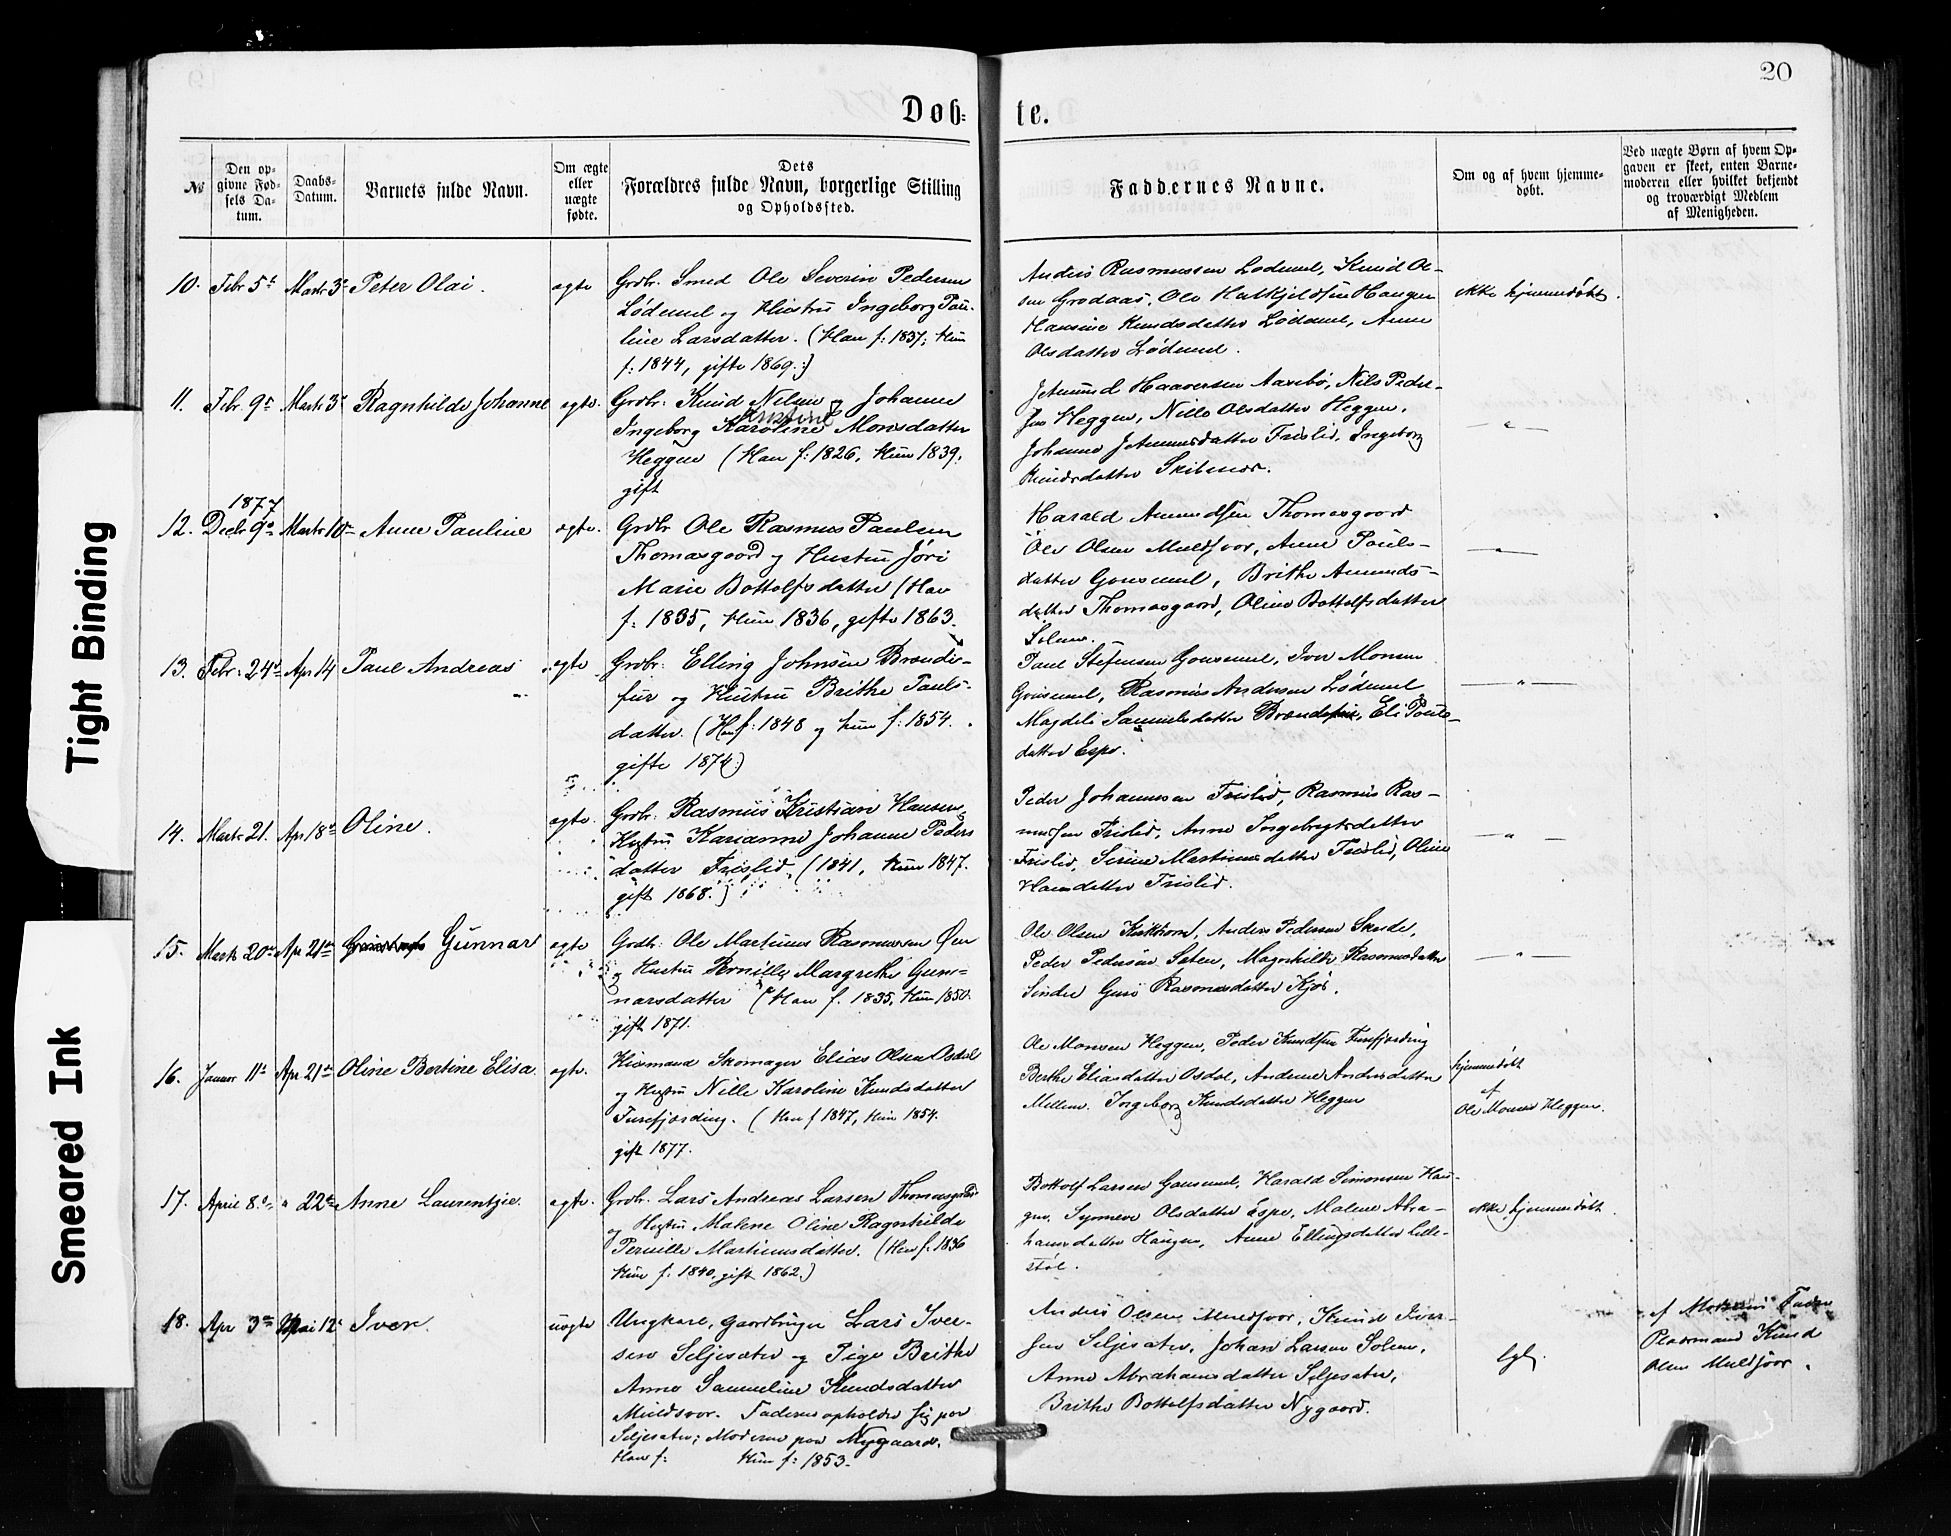 20
Døb= te.
№
Den op-
givne Fød-
sels Da-
tum.
Daabs-
Datum.
Barnets fulde Navn.
Om ægte
eller
uægte
fødte.
Dets
Forældres fulde Navn, borgerlige Stilling
og Opholdssted.
Faddernes Navne.
Om og af hvem hjemme-
døbt.
Ved uægte Børn af hvem Op-
gaven er skeet, enten Barne-
moderen eller hvilket bekjendt
og troværdigt Medlem
af Menigheden.
10. Febr 5t Marts 3e Peter Olai. ægte
Grdbr. Smed Ole Severin Pedersen
Lødemel og Hustru Ingeborg Pau-
line Larsdatter. (Han f: 1837, Hun
f: 1844, gifte 1869.)
Anders Rasmussen Lødemel, Knud Ol-
sen Grodaas, Ole Halkjeldsen Haugen
Hansine Knudsdatter Lødemel, Anne
Olsdatter Lødemel.
ikke hjemmedøbt.
11. Febr. 9e Marts 3e Ragnhilde Johanne ægte.
Grdbr: Knud Nilsen og Johanne
Kristine
Ingeborg Karoline Monsdatter
Heggen (Han f: 1826, Hun 1839.
gift
Jetmund Haaversen Aarebø, Nils Peder-
sen Heggen, Nille Olsdatter Heggen,
Johanne Jetmundsdatter Frislid, Ingeborg
Knudsdatter
— " —
1877
12. Decbr 9e Marts 10e Anne Pauline ægte.
Grdbr Ole Rasmus Paulsen
Thomasgaard og Hustru Jøri
Marie Bottolfsdatter (Han
f: 1835, Hun 1836, gifte 1863.
Harald Amundsen Thomasgaard
Ole Olsen Muldsvor, Anne Pouls-
datter Gousemel, Brithe Amunds-
datter Thomasgaard, Oline Bottolfsdatter
Solem.
— " —
13. Febr: 24e Apr 14 Paul Andreas ægte
Grdbr: Elling Johnsen Brænde-
fur og Hustru Brithe Pauls-
datter. (Han f: 1848 og hun f: 1854.
gifte 1874)
Paul Stefensen Gousemel, Iver Monsen
Gousemel, Rasmus Andersen Lødemel
Magdeli Samuelsdatter Brændefur, Eli Pouls-
datter Espe.
— " —
14. Marts 21. Apr 18e Oline. ægte.
Grdbr: Rasmus Kristian Hansen &
Hustru Karianne Johanne Peders
datter Frislid. (1841, Hun 1847.
gift 1868.)
Peder Johannesen Frislid, Rasmus Ras-
mussen Frislid, Anne Ingebrigtsdatter
Frislid, Serine Martinusdatter Frislid, Oline
Hansdatter Frislid.
— " —
15. Marts 20e Apr 21de Gunnar ægte
Grdb: Ole Martinus Rasmussen Øen
og Hustru Pernille Margrethe Gun-
narsdatter (Han f. 1835, Hun 1850.
gift 1871.
Ole Olsen Kirkhorn, Anders Pedersen Skeide,
Peder Pedersen Sæten, Magnhilde Rasmusdatter
Sindre Guro Rasmusdatter Kjøs.
— " —
16. Januar 11e Apr 21de Oline Bertine Elisa. ægte.
Huusmand Skomager Elias Olsen Osdal
og Hustru Nille Karoline Knudsdatter
Furefjording. (Han f 1847, Hun 1854.
gift 1877.
Ole Monsen Heggen, Peder Knudsen Furefjording
Berthe Eliasdatter Osdal, Andrine Andersdatter
Mellem. Ingeborg Knudsdatter Heggen
hjemmedøbt
af
Ole Monsen Heggen.
17. April 8e " 22de Anne Laurentzie. ægte.
Grdbr. Lars Andreas Larsen Thomasgaard
og Hustru Malene Oline Ragnhilde
Pernille Martinusdatter. (Han f: 1836
Hun f. 1840, gift 1862.)
Bottolf Larsen Gousemel, Harald Simonsen Hau-
gen, Synneve Olsdatter Espe, Malene Abra-
hamsdatter Haugen, Anne Ellingsdatter Lille-
støl.
ikke hjemmedøbt.
18. Apr 3de Mai 12e Iver. uægte
Ungkarl, Gaardbruger Lars Iver-
sen Seljesæter og Pige Brithe
Anne Sammeline Knudsdatter
Muldsvor. Faderen opholder sig paa
Seljesæter, Moderen paa Nygaard.
Han f: Hun f: 1853.
Anders Olsen Muldsvor, Knud Iver-
sen Seljesæter, Johan Larsen Solem,
Anne Abrahamsdatter Seljesæter,
Brithe Bottolfsdatter Nygaard.
af Moderens Fader
Plasmand Knud
Olsen Muldsvor.
Tight Binding
Smeared Ink